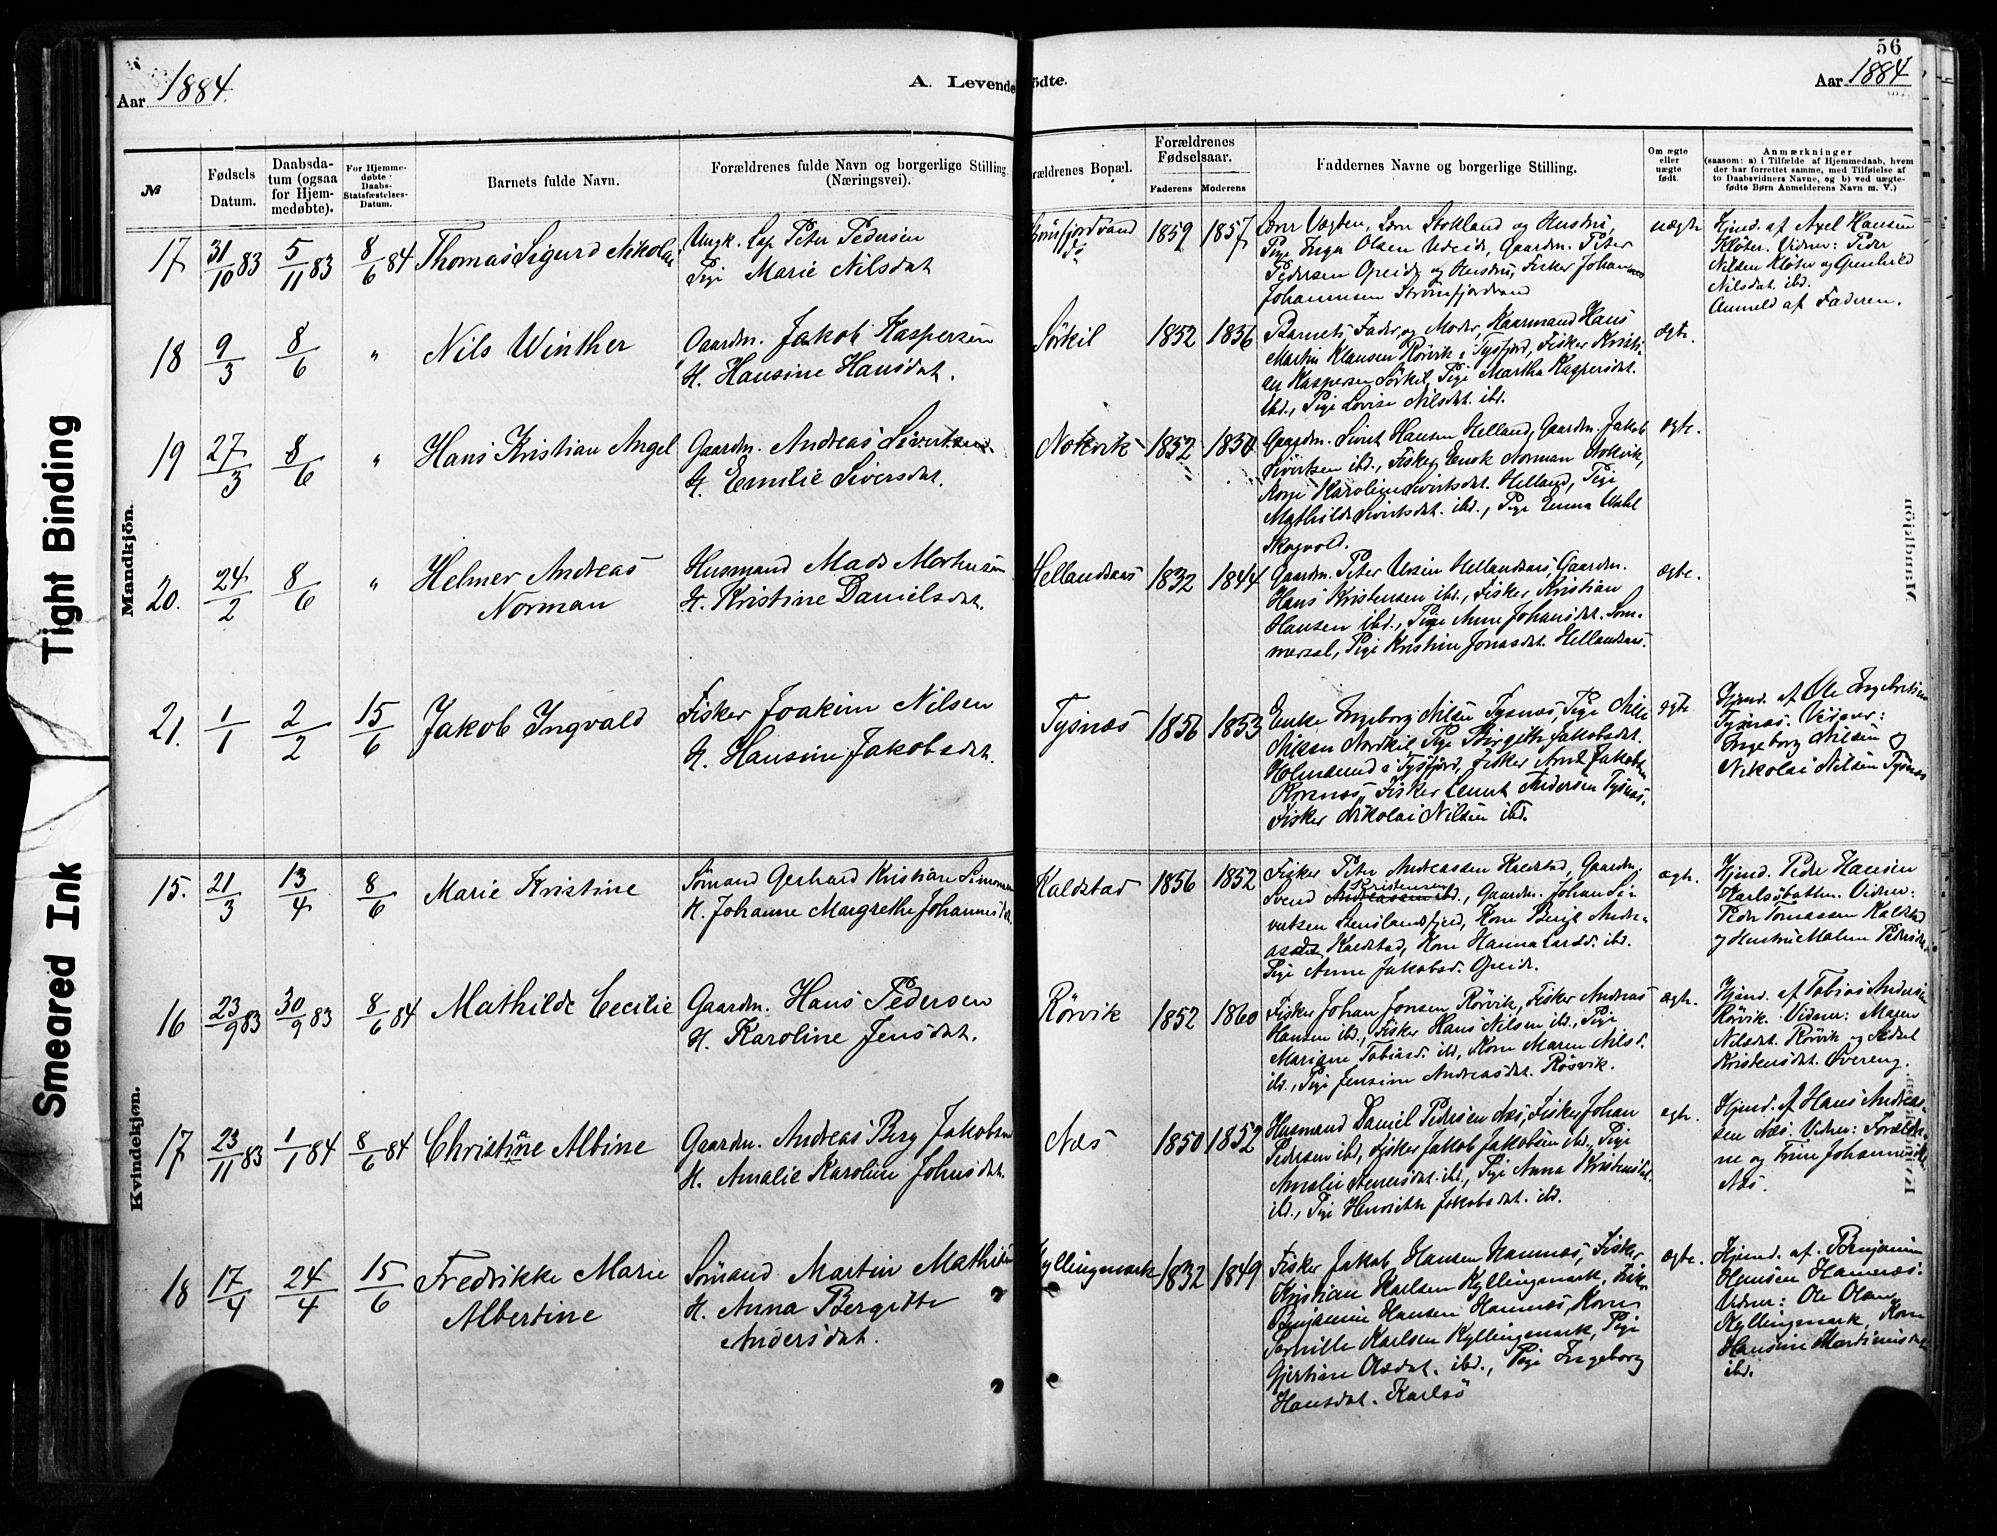 Tight Binding
Smeared Ink
56
Aar 1884.
A. Levende
ödte.
Aar 1884
№
Fødsels Datum.
Daabsda-
tum (ogsaa
for Hjem-
medøbte).
For Hjemme-
døbte
Daabs-
Statsfæstelses-
Datum.
Barnets fulde Navn.
Forældrenes fulde Navn og borgerlige Stilling
(Næringsvei).
Forældrenes Bopæl.
Forældrenes
Fødselsaar.
Faderens
Moderens
Faddernes Navne og borgerlige Stilling.
Om ægte
eller
uægte
født.
Anmærkninger
(saasom: a) i Tilfælde af Hjemmedaab, hvem
der har forrettet samme, med Tilføielse af
to Daabsvidners Navne, og b) ved uægte-
fødte Børn Anmelderens Navn m. V.)
Mandkjön.
17 31/10 83 5/11 83 8/6 84 Thomas Sigurd Nikolai
Ungk. Lap Peter Pedersen
Pige Marie Nilsdat
1859 1857
Pige Inga Olsen
Gaardm. Peter
Pedersen Gpeide og Hustru, Fisker Johannes
Johannesen Strømfjordvand
uægte
Hjmd. af Axel Hansen
Kløter. Vidner: Peder
Nilsen Kløter og Gunhild
Nilsdat. ibd.
Anmeld af Faderen.
18 9/3 8/6 " Nils Winther
Gaardm. Jakob Kaspersen
H. Hansine Hansdat.
Sörkil 1852 1856
Barnets Fader og Moder, Kaarmand Hans
Martin Klausen Rørvik i Tysfjord, Fisker Kristi-
an Kaspersen Sörkil, Pige Martha Kaspersdat.
ibd., Pige Lovise Nilsdat. ibd.
ægte.
19 27/3 8/6 " Hans Kristian Angel
Gaardm. Andreas Sivertsen.
H. Emilie Siversdat.
1852 1850
Gaardm. Sivert Hansen Helland, Gaardm. Jakob
Sivertsen ibd., Fisker Enok Norman
Kone Karoline Sivertsdat. Helland, Pige
Mathilde Sivertsdat. ibd., Pige Emma
Skogvold.
ægte.
20. 24/2 8/6 " Helmer Andreas
Norman
Husmand Mads
H. Kristine Danielsdat.
1832 1844
Gaardm. Peter
Gaardm.
Hans Kristensen ibd., Fisker Kristian
Hansen ibd., Pige Anne Johansdat. Som-
mersel, Pige Kristine Jonasdat. Hellandnæs.
ægte.
21. 1/1 2/2 15/6 Jakob Ingvald
Fisker Joakim Nilsen
H. Hansine Jakobsdat.
Tysnæs 1856 1853
Enke Ingeborg Nilsen Tysnæs, Pige
Nilsen Nordkil, Pige Birgithe Jakobsdat.
Holmsund i Tysfjord, Fisker Arnt Jakobsen
Korsnæs, Fisker
Andersen Tysnæs.
Fisker Nikolai Nilsen ibd.
ægte
Hjmd. af Ole Ingebrigtsen
Tysnæs. Vidner:
Ingeborg Nilsen og
Nikolai Nilsen Tysnæs
Kvindekjøn.
15. 21/3 13/4 8/6 Marie Kristine
Sömand Gerhard Kristian
H. Johanne Margrethe Johannesdat.
Kaldstad 1856 1852
Fisker Peter Andreassen Kaldstad, Gaardm.
Kristensen
Svend Andreassen ibd., Gaardm. Johan Si-
vertsen
Kone Berit Andre-
asdat. Kaldstad, Kone Hanna Larsd. ibd.
Pige Anne Jakobsd. Gpeide.
ægte.
Hjmd. Peder Hansen
Karlsøbotten. Vidner:
Peder Tomassen Kaldstad
og Hustru Malene Pedersdat.
16 23/9 83 30/9 83 8/6 84 Mathilde Cecilie
Gaardm. Hans Pedersen
H. Karoline Jensdat.
Rørvik 1852 1860
Fisker Johan Jonsen Rørvik, Fisker Andreas
Hansen ibd., Fisker Hans Nilsen ibd., Pige
Mariane Tobiasd. ibd, Kone Maren Nilsd.
ibd., Pige Jensine Andreasdat. Rösvik.
ægte.
Hjmd. af Tobias Andersen
Rørvik. Vidner: Maren
Nilsdat. Rørvik og Sidsel
Kristensdat. Övereng.
17 23/11 83 1/1 84 8/6 84 Christine Albine
Gaardm. Andreas Berg Jakobsen
H. Amalie Karoline Johnsdat.
Næs 1850 1852
Husmand Daniel Pedersen Næs, Fisker Johan
Pedersen ibd, Fisker Jakob Jakobsen ibd, Pige
Amalie
ibd., Pige Anna Kristensdat.
ibd., Pige Henriette Jakobsdat. ibd.
ægte.
Hjmd. af Hans Andreas-
sen Næs. Vidner: Foreldre-
ne og Trine Johannesdat
Næs.
18 17/4 24/4 15/6 Fredrikke Marie
Albertine
Sömand Martin
H. Anna Bergitte
Andersdat.
Kyllingmark 1832 1849
Fisker Jakob Hansen Hamnæs, Fisker
Kristian Karlsen Kyllingmark, Fisker
Benjamin Hansen Hamnæs, Kone
Karlsen Kyllingmark, Pige
Gjertine Olsdat. ibd., Pige Ingeborg
Hansdat. Karlsö
ægte.
Hjmd. af Benjamin
Hansen Hamnæs.
Vidner: Ole Olsen
Kyllingmark, Kone
Hansine Martinusdat
ibd.